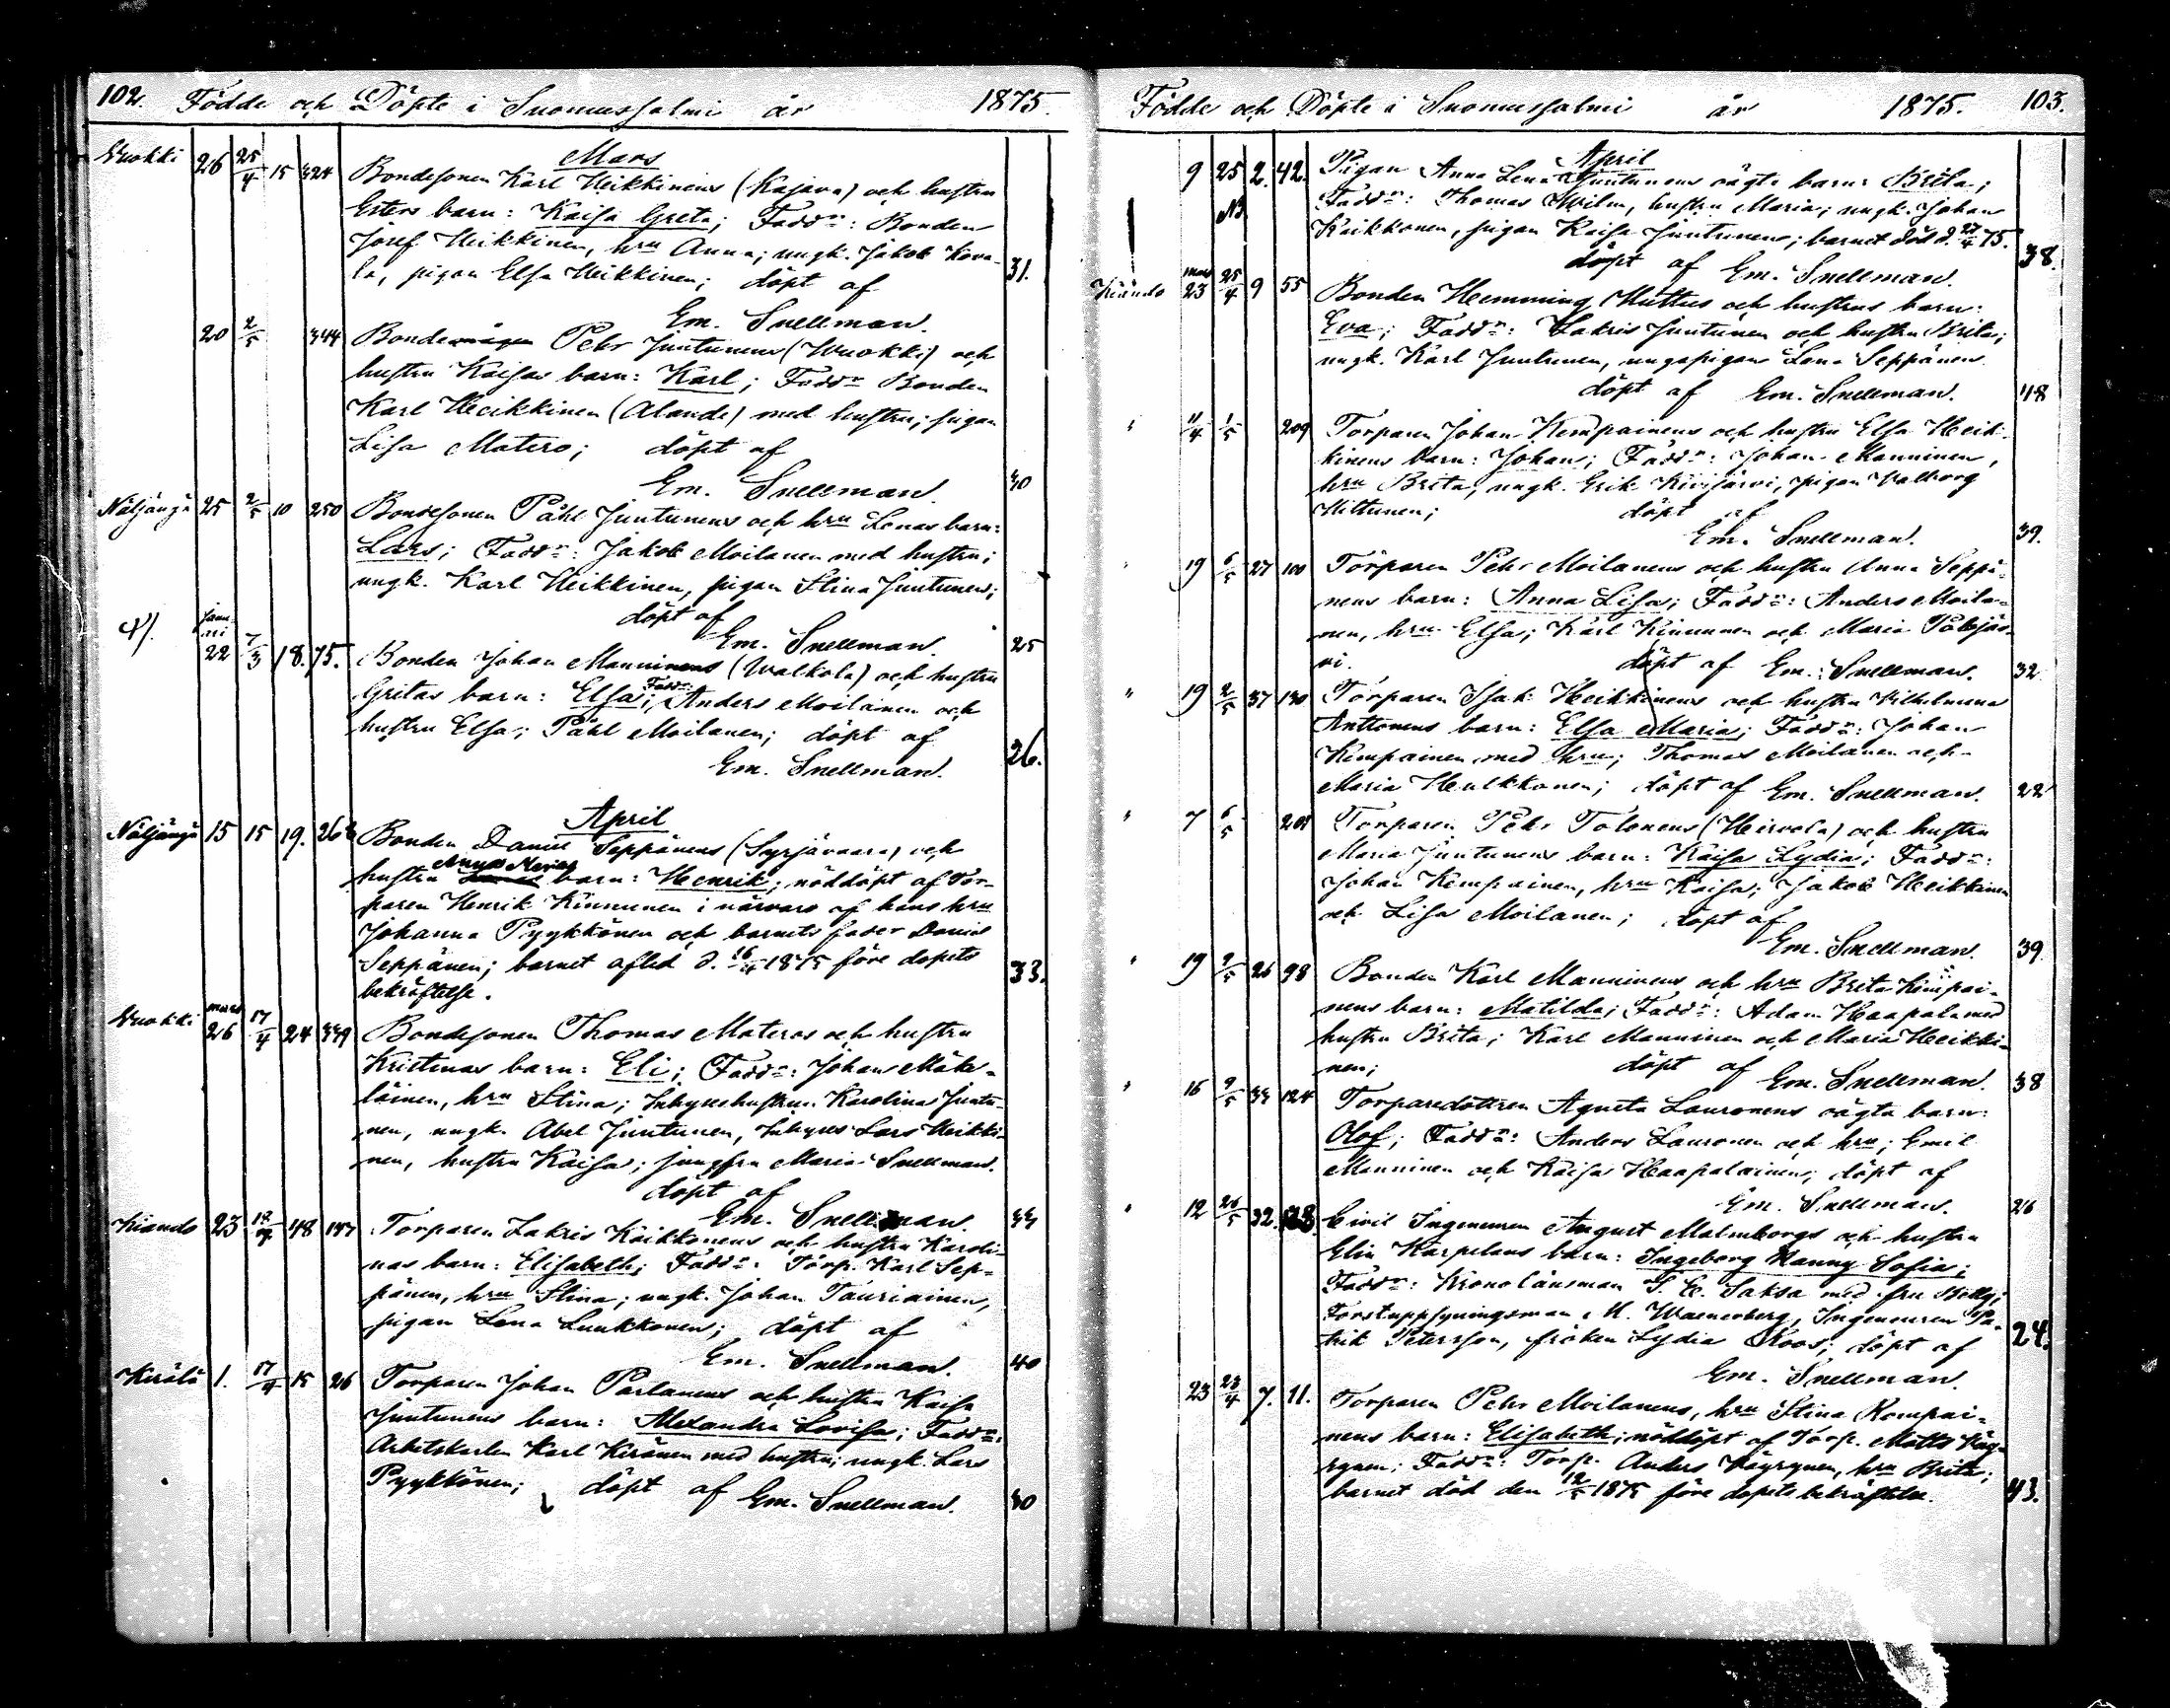 102. Födde och Döpte i Suomussalmi år 1875.
Mars
Wuokki 26 25/4 15 324 Bondesonen Karl Heikkinens (Kajava) och hustru
Esters barn: Kaisa Greta; Faddr: Bonden
Josef Heikkinen, hru Anna; ungk. Jakob Kova-
la, pigan Elsa Heikkinen; döpt af 31.
Em. Snellman.
20 2/5 344 Bondemågen Pehr Juntunens (Wuokki) och
hustru Kaisas barn: Karl; Faddr Bonden
Karl Heikkinen (Alande) med hustru; pigan
Lisa Matero; döpt af
Em. Snellman. 40
Näljängä 25 2/5 10 250 Bondesonen Påhl Juntunens och hru Lenas barn:
Lars; Faddr: Jakob Moilanen med hustru;
ungk. Karl Heikkinen, pigan Stina Juntunen;
döpt af
Em. Snellman. 25
januari 22 7/3 18. 75. Bonden Johan Manninens (Walkola) och hustru
Gretas barn: Elsa; Faddr: Anders Moilanen och
hustru Elsa; Påhl Moilanen; döpt af
Em. Snellman. 26.
April
Näljängä 15 15 19. 262 Bonden Daniel Seppänens (Syrjävaara) och
hustru Anna Marias barn: Henrik; nöddöpt af Tor-
paren Henrik Kinnunen i närvaro af hans hru
Johanna Pyykkönen och barnets fader Daniel
Seppänen; barnet afled d. 16/4 1875 före dopets 33.
bekräftelse.
Wuokki mars 26 17/4 24 339 Bondesonen Thomas Materos och hustru
Kristinas barn: Eli; Faddr: Johan Mäke-
läinen, hru Stina; Inhyseshustrun Karolina Juntu-
nen, ungk. Abel Juntunen, Inhyses Lars Heikki-
nen, hustru Kaisa; jungfru Maria Snellman.
döpt af
Em. Snellman. 33
Kiando 23 18/4 48 147 Torparen Zakris Kaikkonens och hustru Karoli-
nas barn: Elisabeth; Faddr: Torp. Karl Sep-
pänen, hru Stina; ungk. Johan Tauriainen,
pigan Lena Luukkonen; döpt af
Em. Snellman. 40
Kerälä 1. 17/4 15 26 Torparen Johan Partanens och hustru Kaisa
Juntunens barn: Alexandra Lovisa; Faddr:
Arbetskarlen Karl Keränen med hustru; ungk. Lars
Pyykkönen; döpt af Em. Snellman. 30
Födde och Döpte i Suomussalmi år 1875. 103.
April
9 25 2. 42. Pigan Anna Lena Juntunens oägta barn: Brita;
N3 Faddr: Thomas Wilm, hustru Maria; ungk. Johan
Kaikkonen, pigan Kaisa Juntunen; barnet död d. 27/4 75.
döpt af Em. Snellman. 38.
Kiando mars 23 25/4 9 55 Bonden Hemming Huttus och hustrus barn:
Eva; Faddr: Zakris Juntunen och hustru Brita;
ungk. Karl Juntunen, ungapigan Lena Seppänen
döpt af Em. Snellman. 48
" 11/4 1/5 209 Torparen Johan Kempainens och hustru Elsa Heik-
kinens barn: Johan; Faddr: Johan Manninen,
hru Brita, ungk. Erik Kivijärvi, pigan Walborg
Hittunen; döpt af
Em. Snellman. 39.
" 19 6/5 27 100 Torparen Pehr Moilanens och hustru Anna Seppä-
nens barn: Anna Lisa; Faddr: Anders Moila-
nen, hru Elsa; Karl Kinnunen och Maria Pölojär-
vi. döpt af Em. Snellman. 32
" 19 2/5 37 130 Torparen Isak Heikkinens och hustru Vilhelmina
Anttonens barn: Elsa Maria; Faddr: Johan
Kempainen med hru; Thomas Moilanen och
Maria Hulkkonen; döpt af Em. Snellman. 22
" 7 6/5 201 Torparen Pehr Tolonens (Heirvala) och hustru
Maria Juntunens barn: Kaisa Lydia; Faddr:
Johan Kempainen, hru Kaisa; Jakob Heikkinen
och Lisa Moilanen; döpt af
Em. Snellman. 39
" 19 9/5 26 98 Bonden Karl Manninens och hru Brita Kempai-
nens barn: Matilda; Faddr: Adam Haapala med
hustru Brita; Karl Manninen och Maria Heikki-
nen; döpt af Em. Snellman. 38
" 16 9/5 33 124 Torparedottren Agneta Lauronens oägta barn:
Olof; Faddr: Anders Lauronen och hru; Emil
Manninen och Kaisa Haapalainen; döpt af
Em. Snellman. 26
" 12 26/5 32. Civil Ingenieuren August Malmborgs och hustru
Elin Karpelans barn: Ingeborg Nanny Sofia;
Faddr: Kronolänsman S. E. Saksa med fru Molly;
Forstuppsyningsman M. Waenerberg, Ingenieuren Pa-
trik Petersson, fröken Lydia Roos; döpt af 24.
Em. Snellman.
23 23/4 7. 11. Torparen Pehr Moilanens, hru Stina Kempai-
nens barn: Elisabeth; nöddöpt af Torp. Matts Väy-
rynen; Faddr: Torp. Anders Väyrynen, hru Brita;
barnet död den 12/5 1875 före dopets bekräftelse. 43.